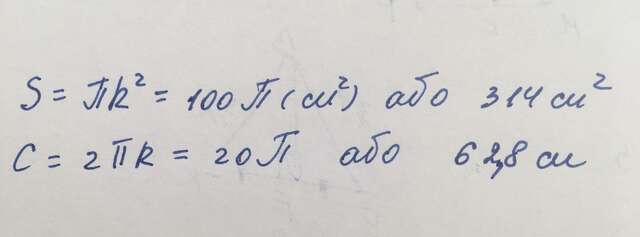 S = πR² = 100π (см²) або 314 см²
C = 2πR = 20π або 62,8 см